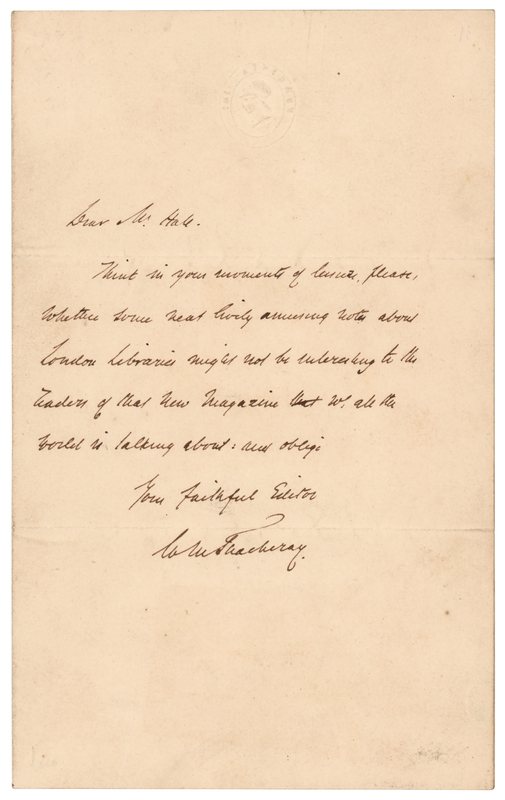 THE ATHENÆUM
Dear Mr. Hale.
Think in your moments of leisure, please,
whether some neat lively amusing notes about
London Libraries might not be interesting to the
readers of that New Magazine wh. all the
world is talking about: and oblige
Your faithful Editor
W M Thackeray.